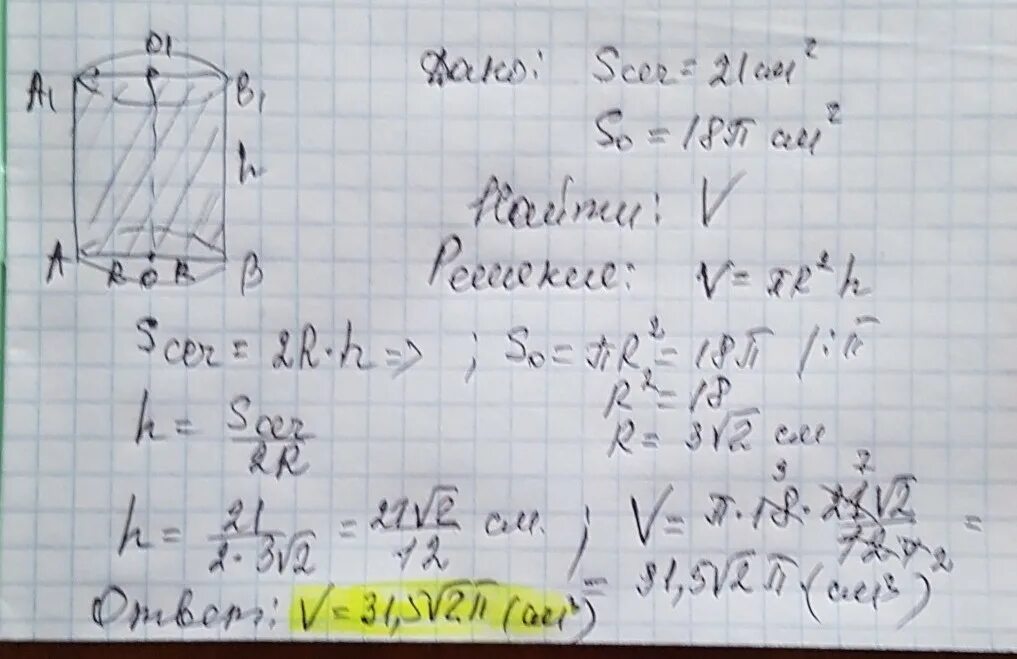 O1
A1 B1
h
A R O R B
Дано: Sсеч = 21 см²
S₀ = 18π см²
Найти: V
Решение: V = πR²h
Sсеч = 2R·h => ; S₀ = πR² = 18π /:π
R² = 18
h = Sсеч/2R
R = 3√2 см
h = 21/2·3√2 = 21√2/12 см ; V = π·18·21√2/12 =
= 31,5√2π (см³)
Ответ: V = 31,5√2π (см³)